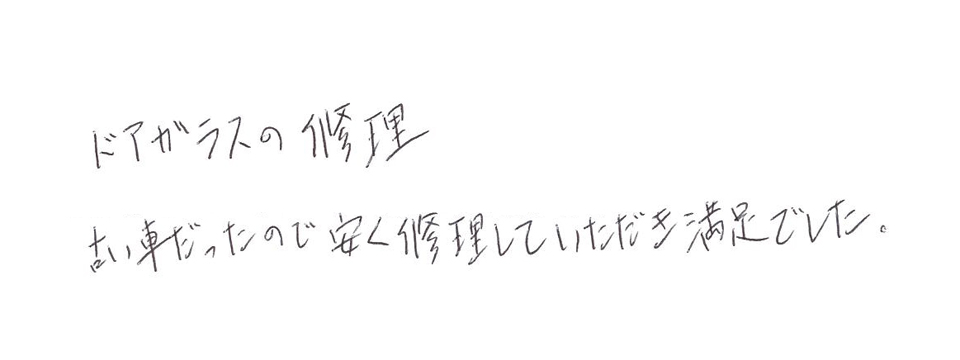 ドアガラスの修理
古い車だったので安く修理していただき満足でした。